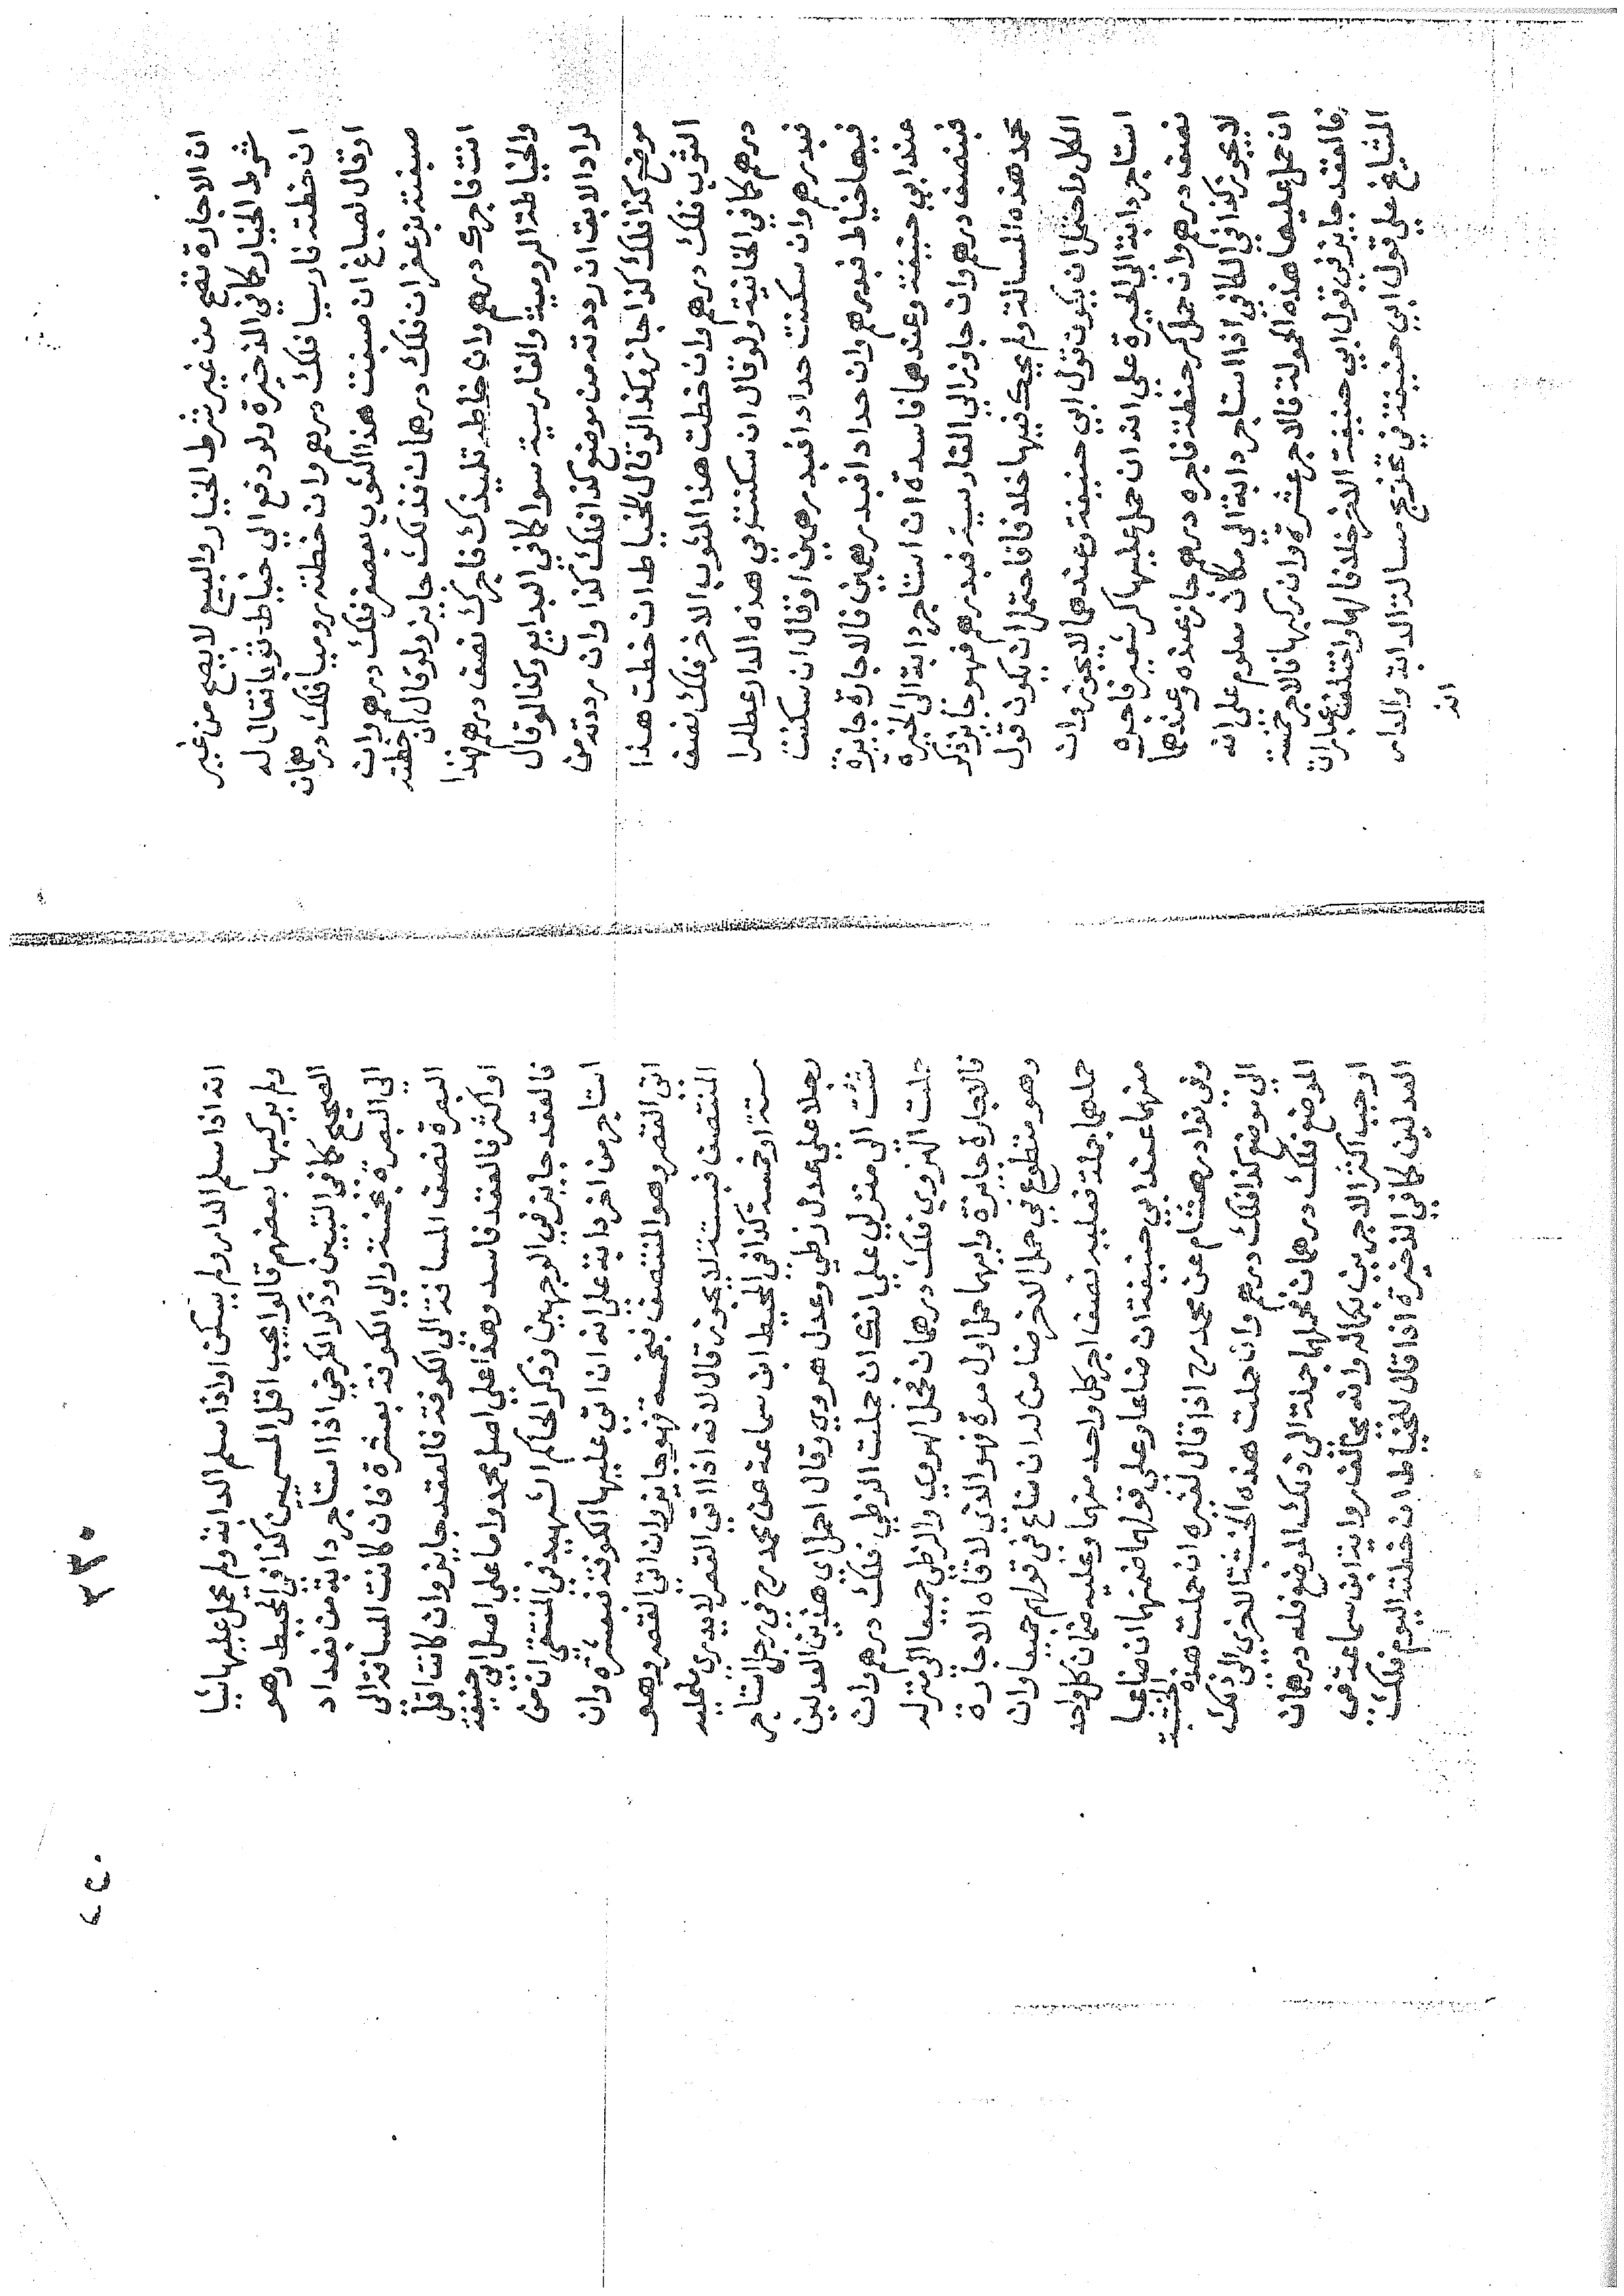 ان الاجارة تصح من غير شرط الخيار والبيع لا يصح من غير
شرط الخيار كما في الذخيرة ولو دفع الى خياط ثوبا فقال له
ان خطته فارسيا فلك درهم وان خطته روميا فلك درهمان
او قال لصباغ ان صبغت هذا الثوب بعصفر فلك درهم وان
صبغته بزعفران فلك درهمان فذلك جايز ولو قال ان خطته
انت فاجرك درهم وان خاطه تلميذك فاجرك نصف درهم فهذا
والخياطة الرومية والفارسية سوا كما في البدايع وكذا لو قال
لراد الابق ان رددته من موضع كذا فلك كذا وان رددته من
موضع كذا فلك كذا جاز وكذا لو قال للخياط ان خطت هذا
الثوب فلك درهم وان خطت هذا الثوب الاخر فلك نصف
درهم كما في الخانية ولو قال ان سكنت في هذه الدار عطارا
فبدرهم وان سكنت حدادا فبدرهمين او قال ان سكنت
فيها خياط فبدرهم وان حدادا فبدرهمين فالاجارة جايزة
عند ابي حنيفة وعندهما فاسدة ان استاجر دابة الى الحيرة
فبنصف درهم وان جاوز الى القادسية فبدرهم فهو جايز ذكر
محمد هذه المسالة ولم يحك فيها خلافا فاحتمل ان يكون قول
الكل واحتمل ان يكون قول ابي حنيفة وعندهما لا يجوز وان
استاجر دابة الى الحيرة على انه ان حمل عليها كر شعير فاجره
نصف درهم وان حمل كر حنطة فاجره درهم جاز عنده وعندهما
لا يجوز كذا في الكافي اذا استاجر دابة الى مكان معلوم على انه
ان حمل عليها هذه الحمولة فالاجر عشرة وان ركبها فالاجر خمسة
فالعقد جايز في قول ابي حنيفة الاخر خلافا لهما واختلفت عبارات
المشايخ على قول ابي حنيفة في تخريج مسالة الدابة والدار
انه
انه اذا سلم الدار ولم يسكن او اذا سلم الدابة ولم يحمل عليها شيا
ولم يركبها بعضهم قالوا يجب اقل المسميين كذا في المحيط وهو
الصحيح كما في التبيين وذكر الكرخي اذا استاجر دابة من بغداد
الى البصرة بخمسة والى الكوفة بعشرة فان كانت المسافة الى
البصرة نصف المسافة الى الكوفة فالعقد جايز وان كانت اقل
او اكثر فالعقد فاسد وهذا على اصل محمد واما على اصل ابي حنيفة
فالعقد جايز في الوجهين وذكر الحاكم الشهيد في المنتقى ان من
استاجر من اخر دابة على انه ان اتى عليها الكوفة فبعشرة وان
اتى القصر وهو المنتصف فبخمسة فهو جايز وان اتى القصر وهو
المنتصف فبستة لا يجوز قال لانه اذا اتى القصر لا يدرى ما عليه
ستة او خمسة كذا في المحيط ابن سماعة عن محمد رح في رجل استاجر
رجلا على عدل زطي وعدل هروي وقال احمل اي هذين العدلين
شئت الى منزلي على انك ان حملت الزطي فلك درهم وان
حملت الهروي فلك درهمان فحمل الهروي والزطي جميعا الى منزله
فالاجارة جايزة وايهما حمل اول مرة فهو الذي لاقاه الاجارة
وهو متطوع في حمل الاخر ضامن له ان ضاع في قولهم جميعا وان
حملهما جملة فعليه نصف اجر كل واحد منهما وعليه ضمان كل واحد
منهما عند ابي حنيفة ان ضاعا وعلى قولهما ضمنهما ان ضاعا
وفي نوادر هشام عن محمد رح اذا قال لغيره ان حملت هذه الخشبة
الى موضع كذا فلك درهم وان حملت هذه الخشبة الاخرى الى ذلك
الموضع فلك درهمان فحملهما جملة الى ذلك الموضع فله درهمان
اوجب اكثر الاجرين بكماله وانه يخالف رواية ابن سماعة في
العدلين كما في الذخيرة اذا قال للخياط ان خطته اليوم فلك